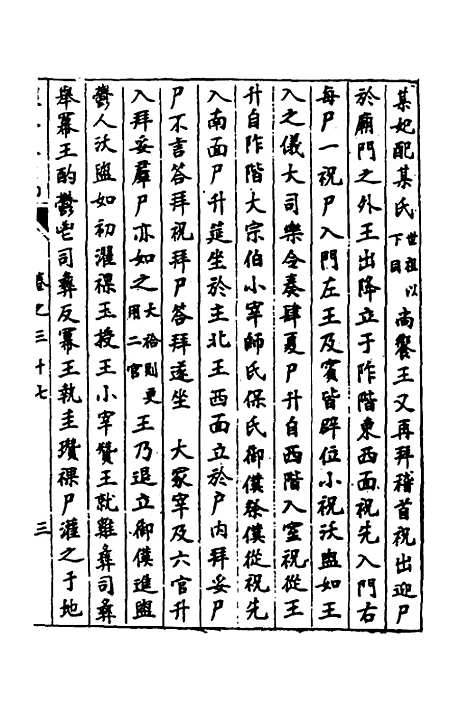 某妃配某氏世祖以下同尚饗王又再拜稽首祝出迎尸
於廟門之外王出降立于阼階東西面祝先入門右
每尸一祝尸入門左王及賓皆辟位小祝沃盥如王
入之儀大司樂令奏肆夏尸升自西階入室祝從王
升自阼階大宗伯小宰師氏保氏御僕祭僕從祝先
入南面尸升筵坐於主北王西面立於戶內拜妥尸
尸不言答拜祝拜尸答拜遂坐 大冢宰及六官升
入拜妥羣尸亦如之大祫則更用二官王乃退立御僕進盥
鬱人沃盥如初濯祼玉授王小宰贊王就雞彝司彝
舉冪王酌鬱鬯司彝反冪王執圭瓚祼尸灌之于地
卷之三十七 三